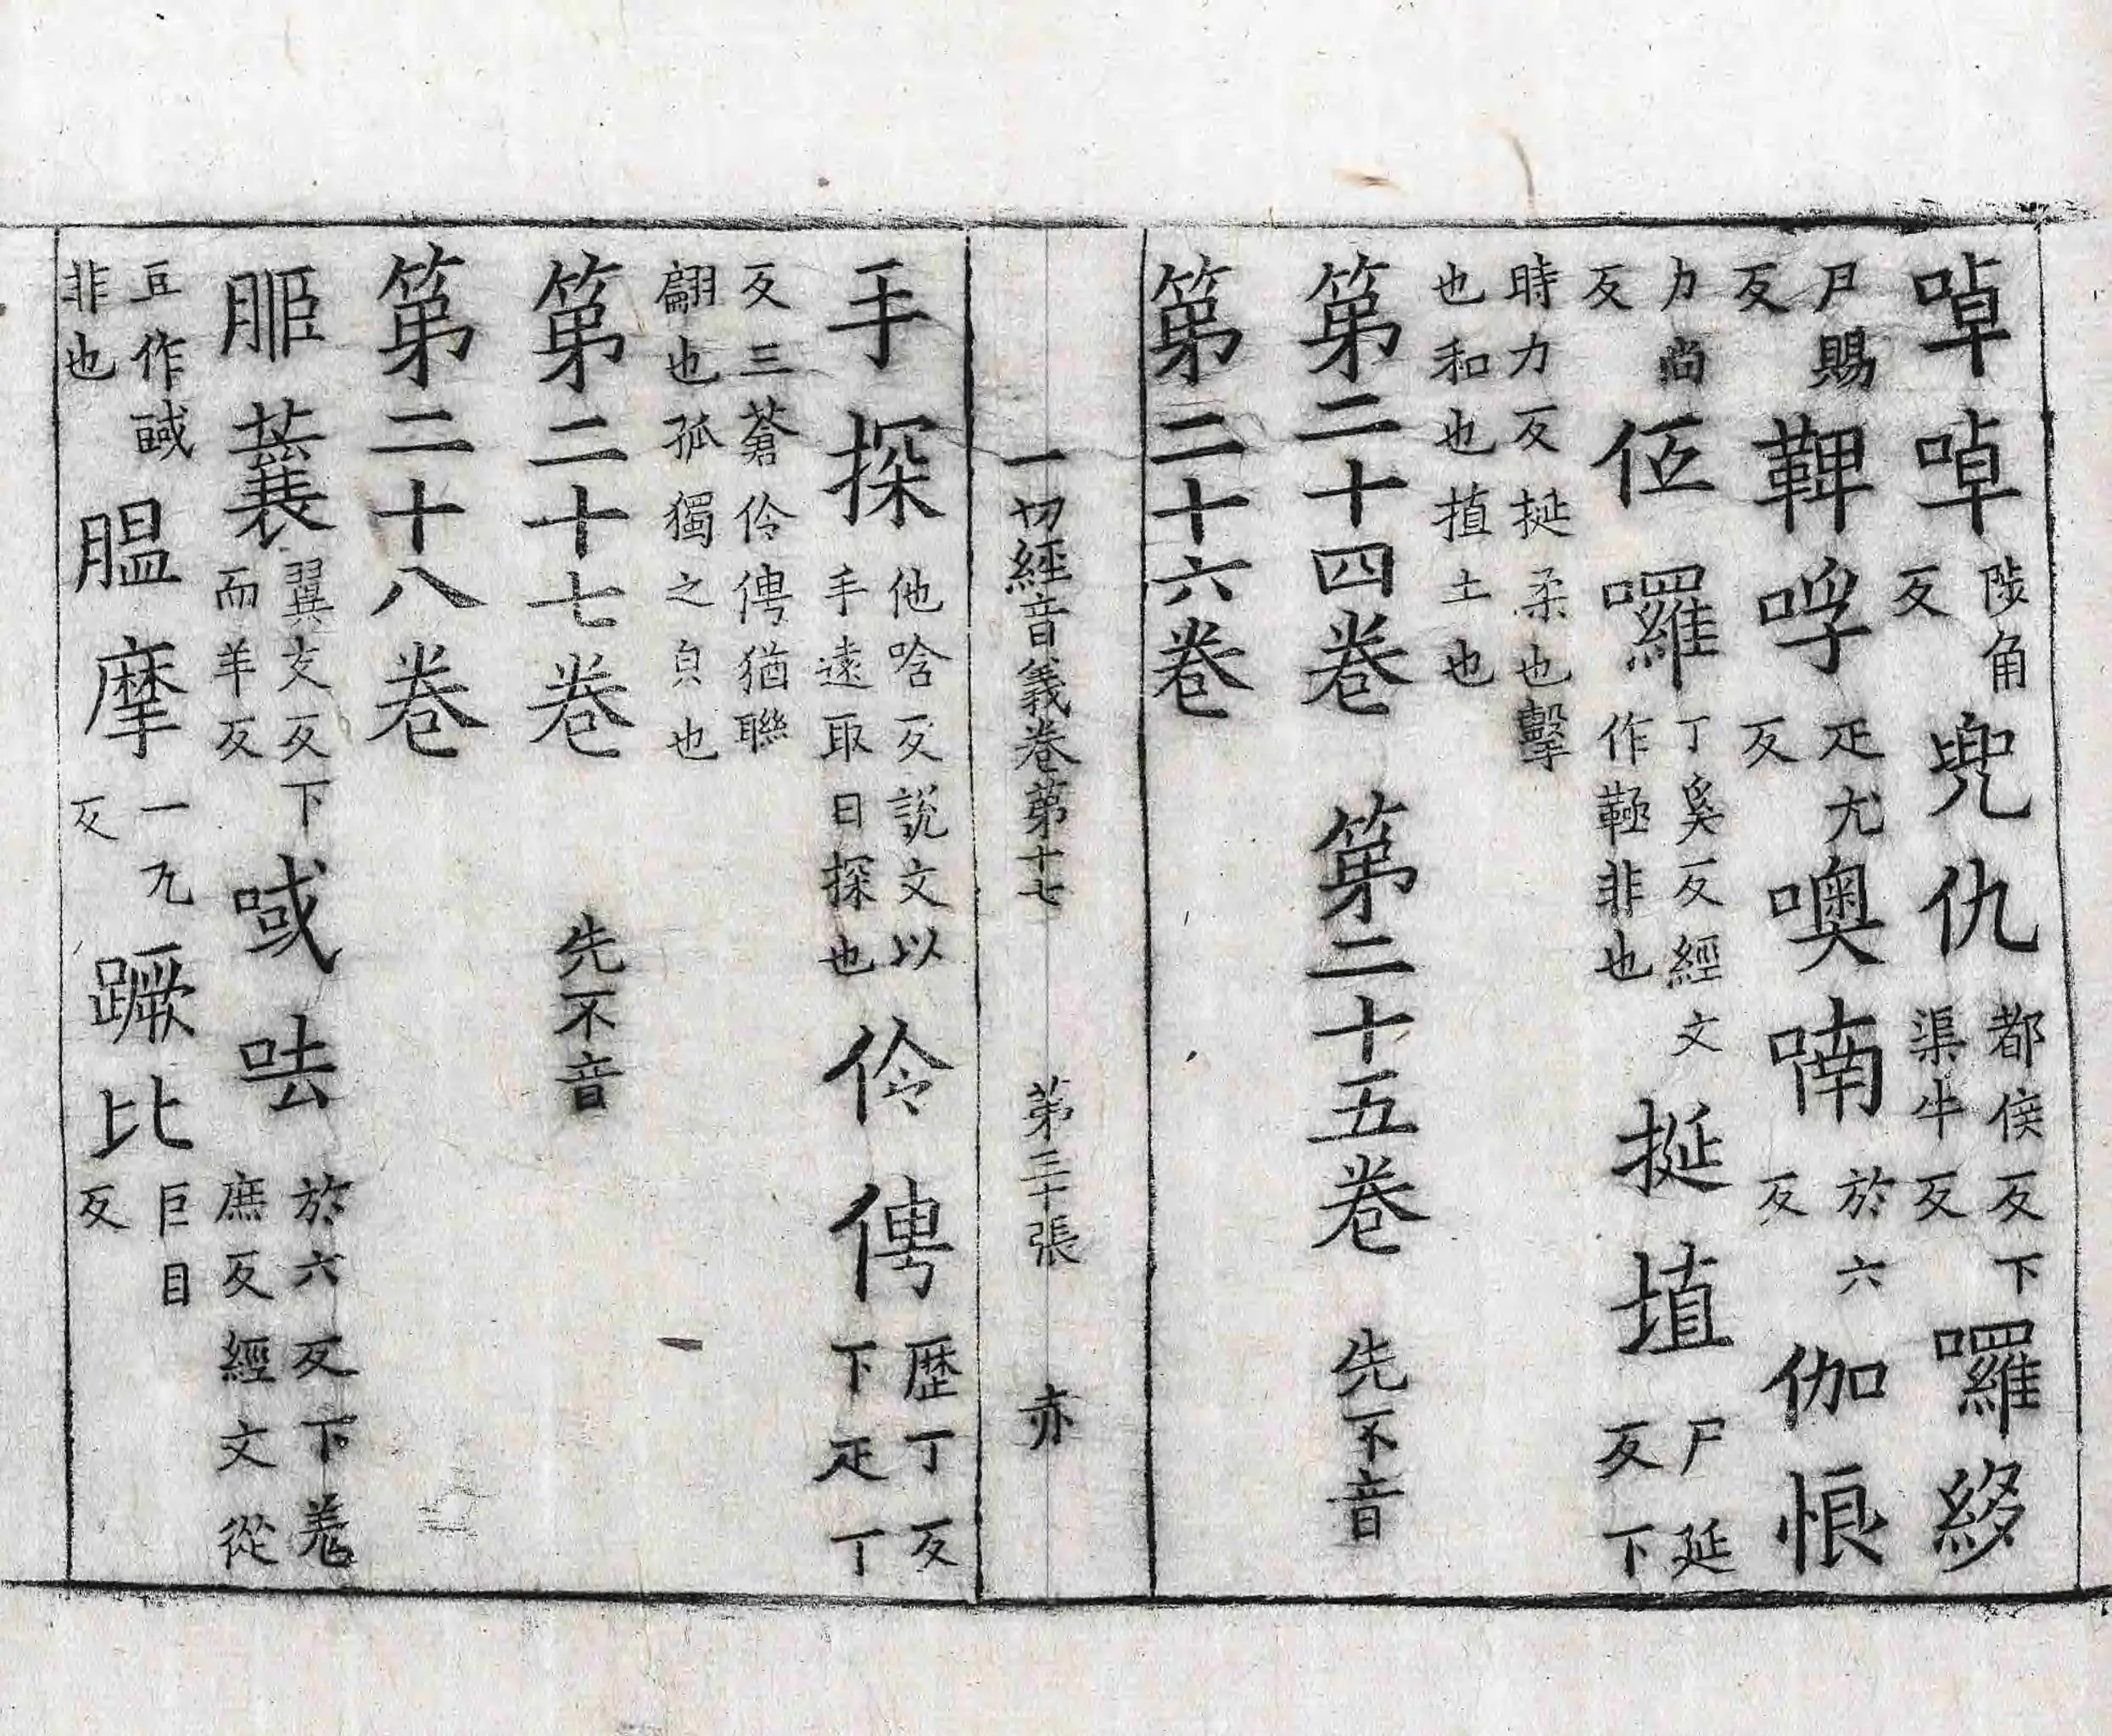 啅啅陟角反兜仇都侯反下渠牛反囉絼
尸賜反鞞哹疋尤反噢喃於六反伽悢
力尚反伍囉丁奚反經文作鞮非也挻埴尸延反下
時力反挻柔也擊也和也埴土也
第二十四卷 第二十五卷 先不音
第二十六卷
一切經音義卷第十七 第三十張 亦
手探他唅反說文以手遠取曰探也伶俜歷丁反下疋丁
反三蒼伶俜猶聯翩也孤獨之皃也
第二十七卷 先不音
第二十八卷
翼支反下而羊反 㖪呿於六反下羌庶反經文從
豆作䤋非也膃摩一九反蹶比巨目反